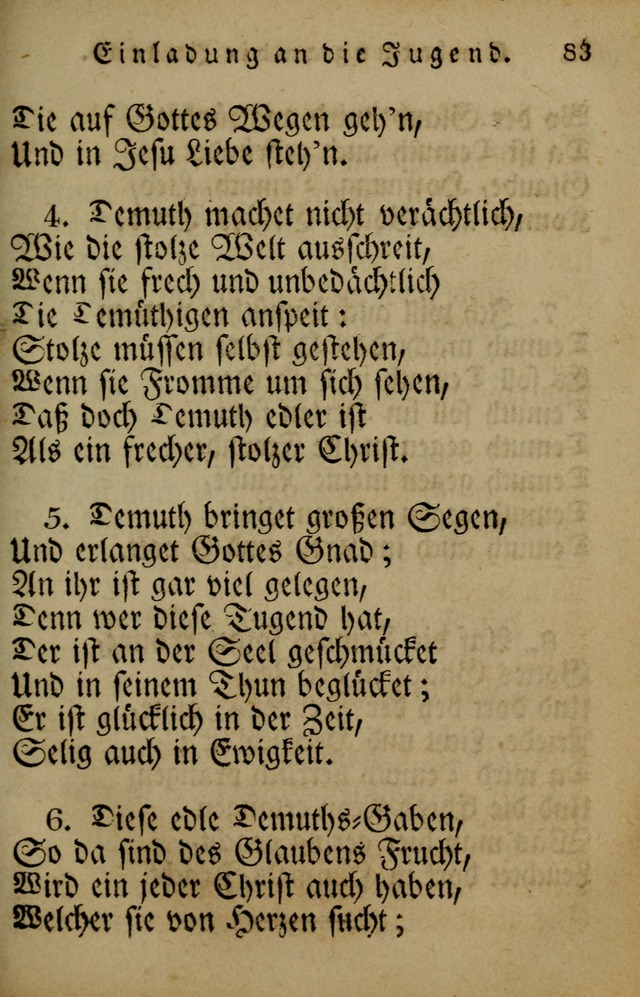 Einladung an die Jugend. 83
Die auf Gottes Wegen geh'n,
Und in Jesu Liebe steh'n.
4. Demuth machet nicht verächtlich,
Wie die stolze Welt ausschreit,
Wenn sie frech und unbedächtlich
Die Demüthigen anspeit:
Stolze müssen selbst gestehen,
Wenn sie Fromme um sich sehen,
Daß doch Demuth edler ist
Als ein frecher, stolzer Christ.
5. Demuth bringet großen Segen,
Und erlanget Gottes Gnad;
An ihr ist gar viel gelegen,
Denn wer diese Tugend hat,
Der ist an der Seel geschmücket
Und in seinem Thun beglücket;
Er ist glücklich in der Zeit,
Selig auch in Ewigkeit.
6. Diese edle Demuths-Gaben,
So da sind des Glaubens Frucht,
Wird ein jeder Christ auch haben,
Welcher sie von Herzen sucht;